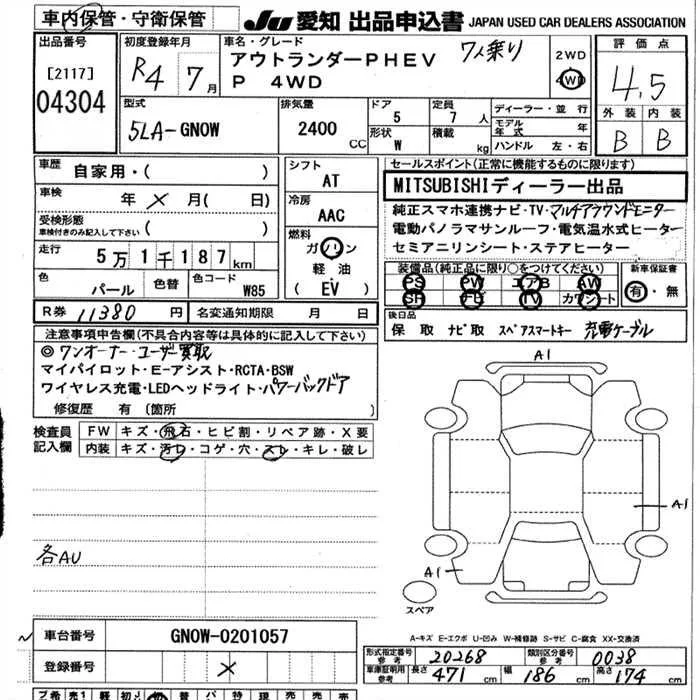 車内保管・守衛保管
JU 愛知 出品申込書 JAPAN USED CAR DEALERS ASSOCIATION
出品番号
[2117]
04304
初度登録年月
R4 7月
車名・グレード
アウトランダーPHEV 7人乗り
P 4WD
2WD
4WD
評価点
4.5
外装 内装
B B
型式
5LA-GN0W
排気量
2400 CC
ドア
5
形状
W
定員
7 人
積載
kg
ディーラー・並行
モデル年式 年
ハンドル 左・右
車歴 自家用・( )
車検 年 × 月( 日)
受検形態
車検付きのみ記入して下さい ( )
走行 5万1千187km
色 パール
色替
色コード W85
R券 11380 円
名変通知期限 月 日
シフト
AT
冷房
AAC
燃料
ガソリン
軽油
(EV)
セールスポイント(正常に機能するものに限ります)
MITSUBISHIディーラー出品
純正スマホ連携ナビ・TV・マルチアラウンドモニター
電動パノラマサンルーフ・電気温水式ヒーター
セミアニリンシート・ステアヒーター
装備品(純正品に限り○をつけて下さい)
PS PW エアB AW
SR ナビ TV カワシート
新車保証書
有・無
後日品
保 取 ナビ取 スペアスマートキー 充電ケーブル
注意事項申告欄(不具合内容等は具体的に記入して下さい)
◎ワンオーナー・ユーザー買取
マイパイロット・E-アシスト・RCTA・BSW
ワイヤレス充電・LEDヘッドライト・パワーバックドア
修復歴 有 〔箇所 〕
検査員記入欄
FW キズ・飛石・ヒビ割・リペア跡・X要
内装 キズ・汚レ・コゲ・穴・スレ・キレ・破レ
各AU
A1
A1
A1
スペア
A-キズ E-エクボ U-凹み W-補修跡 S-サビ C-腐食 XX-交換済
車台番号 GN0W-0201057
登録番号 ×
形式指定番号 参考 20268
類別区分番号 参考 0038
車庫証明用 参考 長さ 471 cm 幅 186 cm 高さ 174 cm